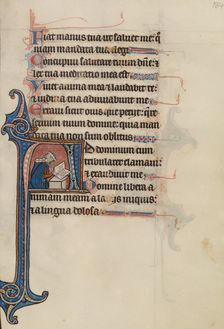 Fiat manus tua ut saluet me: q
niam mandata tua elegi
Concupiui salutare tuum dn̄e: e
lex tua meditatio mea est
Uiuet anima mea et laudabit te:
et iudicia tua adiuuabunt me
Erraui sicut ouis que periit: que
seruum tuum domine: quia man
data tua non sum oblitus
Ad dominum cum
tribularer clamaui:
et exaudiuit me
Domine libera a
nimam meam a labiis iniquis:
et a lingua dolosa